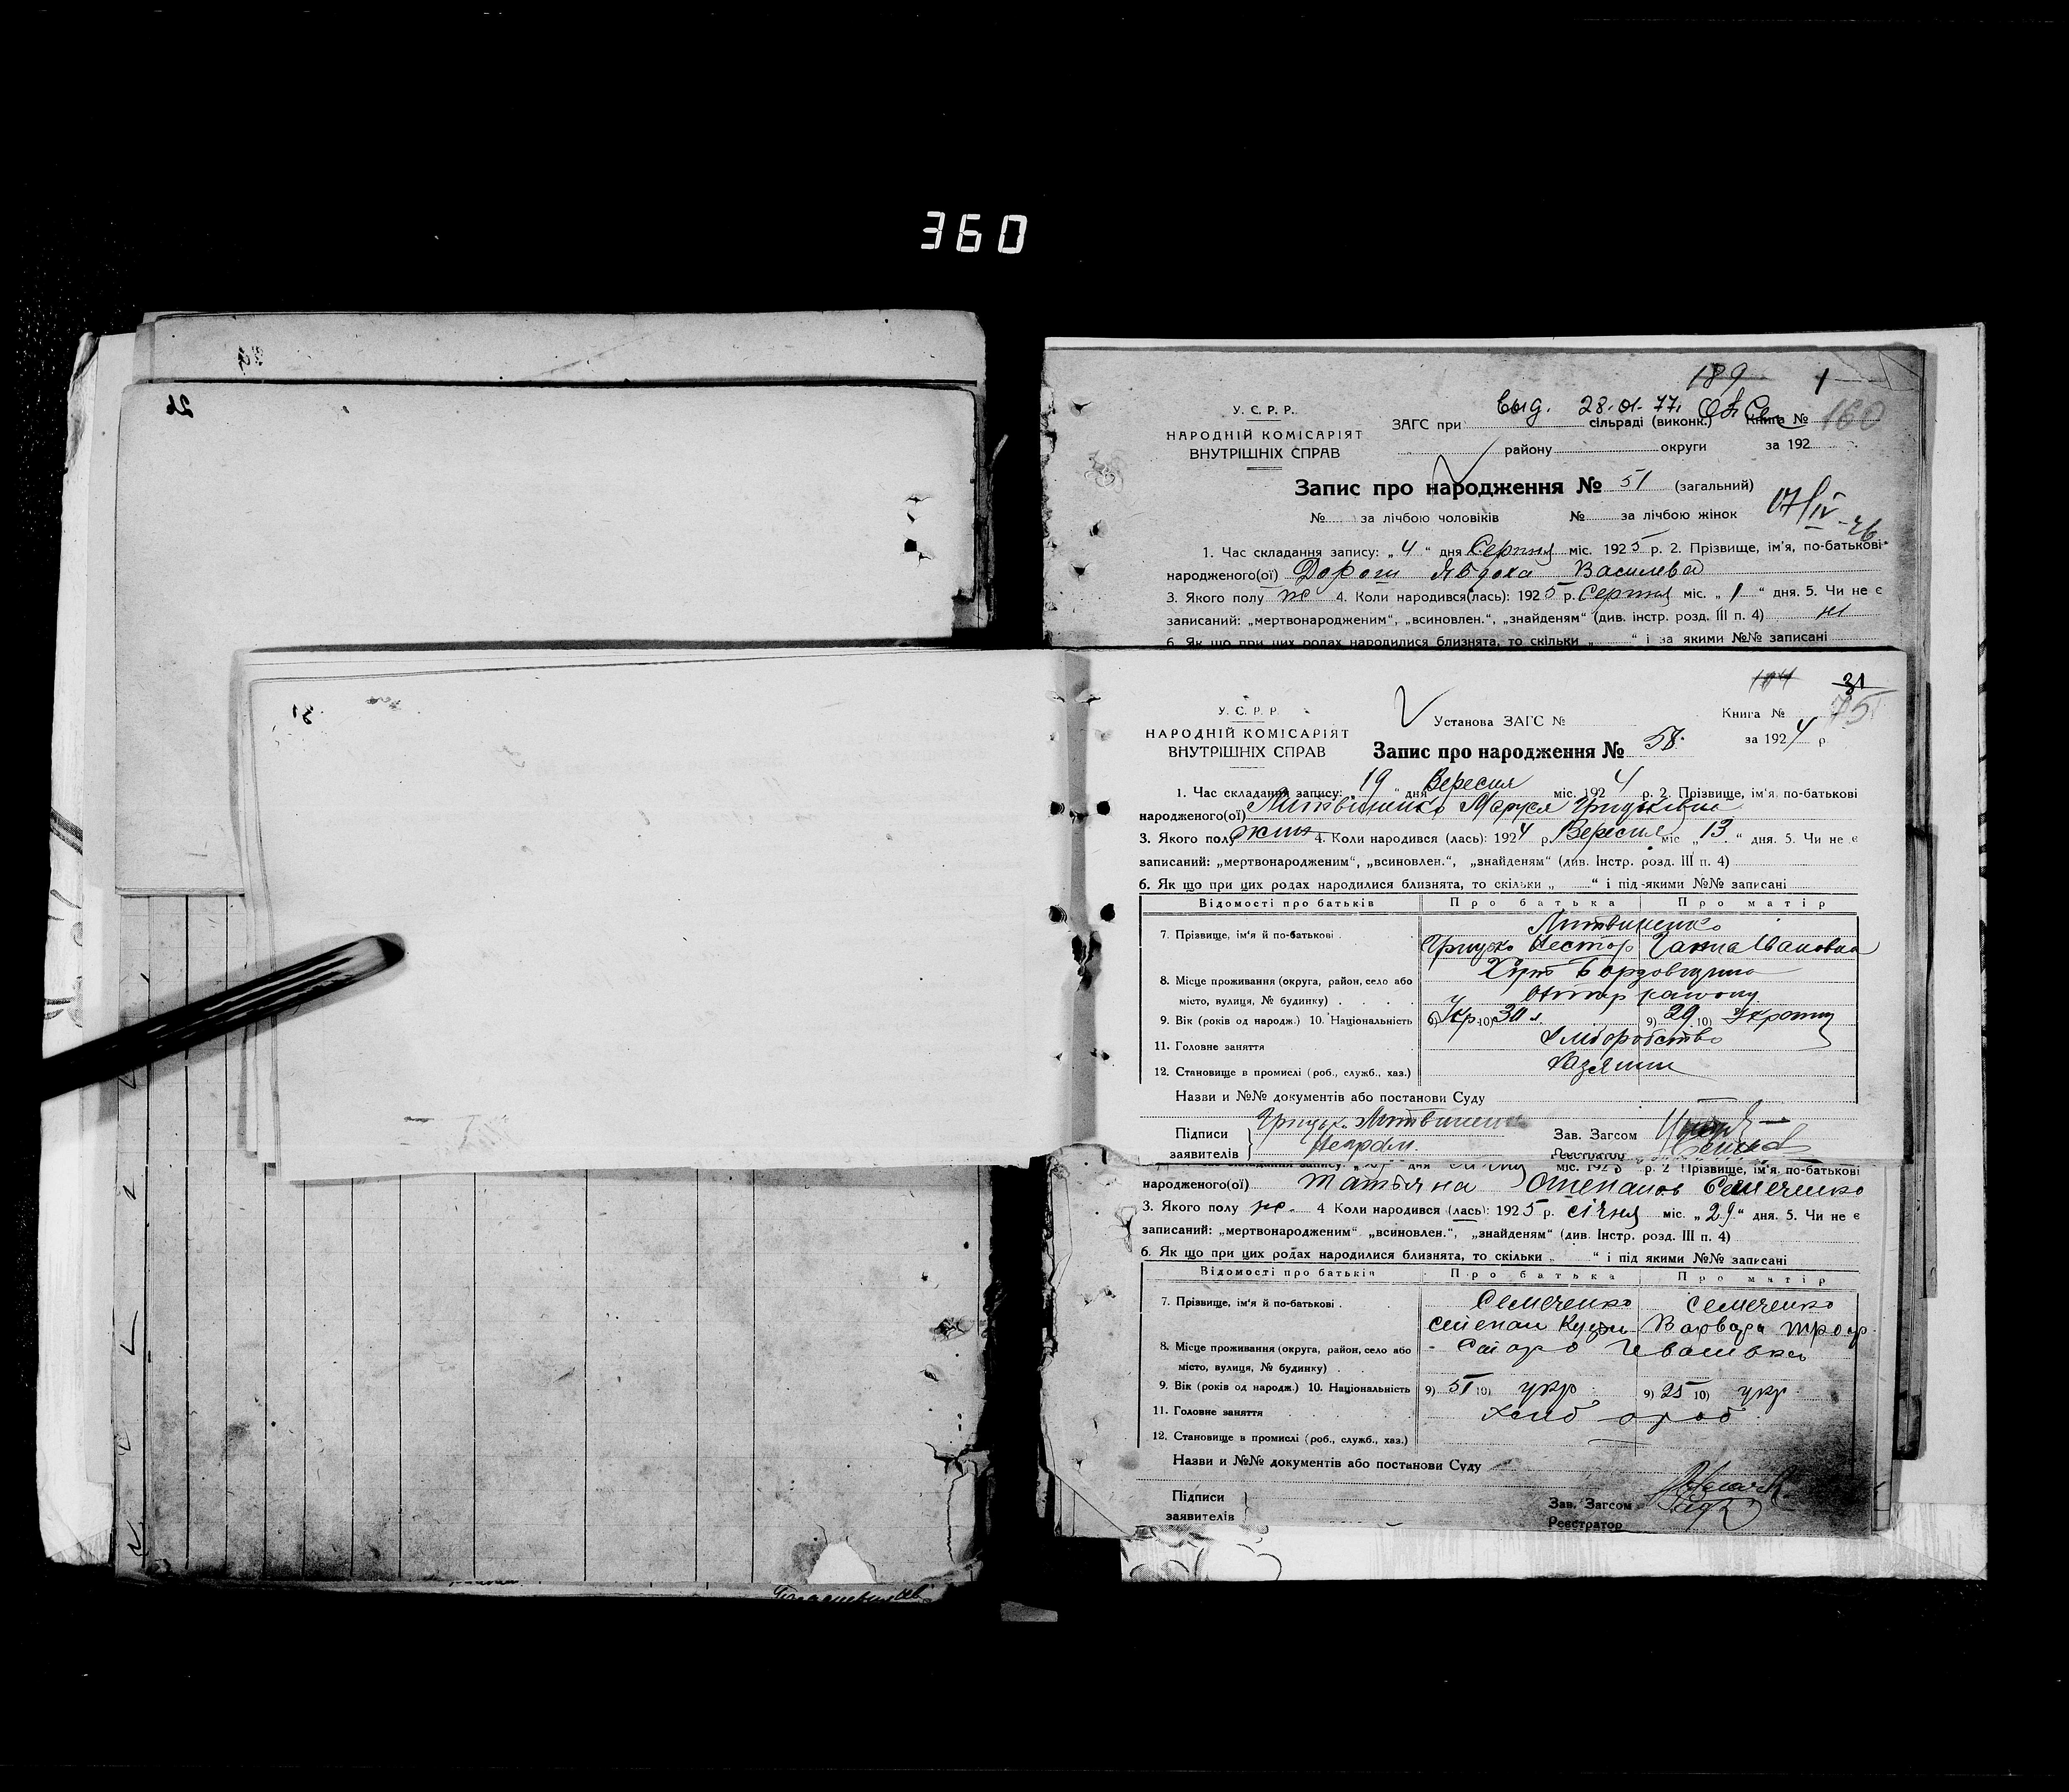 360
26
189 1
У. С. Р. Р.
НАРОДНІЙ КОМІСАРІЯТ
ВНУТРІШНІХ СПРАВ
выд. 28.01.77.
ЗАГС при сільраді (виконк.) Книга № 160
району округи за 192
Запис про народження № 51 (загальний)
№ за лічбою чоловіків № за лічбою жінок
17/IV-26
1. Час складання запису: „4“ дня Серпня міс. 1925 р. 2. Прізвище, ім'я, по-батькові
народженого(ої) Дорош Явдоха Василева
3. Якого полу ж 4. Коли народився(лась): 1925 р. Серпня міс. „1“ дня. 5. Чи не є
записаний: „мертвонародженим“, „всиновлен.“, „знайденям“ (див. інстр. розд. III п. 4) ні
6. Як що при цих родах народилися близнята, то скільки „ “ і за якими №№ записані
31
104 31
75
У. С. Р. Р.
НАРОДНІЙ КОМІСАРІЯТ
ВНУТРІШНІХ СПРАВ
Установа ЗАГС № Книга №
Запис про народження № 58. за 1924 р.
1. Час складання запису: 19 “ дня Вересня міс. 1924 р. 2. Прізвище, ім'я, по-батькові
народженого(ої) Литвиненко Маруся Грицьківна
3. Якого полу жин 4. Коли народився (лась): 1924 р. Вересня міс. „13“ дня. 5. Чи не є
записаний: „мертвонародженим“, „всиновлен.“, „знайденям“ (див. Інстр. розд. III п. 4)
6. Як що при цих родах народилися близнята, то скільки „ “ і під якими №№ записані
Відомості про батьків Про батька Про матір
Литвиненко
7. Прізвище, ім'я й по-батькові Грицько Нестор Ганна Івановна
8. Місце проживання (округа, район, село або
місто, вулиця, № будинку) району
9. Вік (років од народж.) 10. Національність 9) Укр. 10) 30 л. 9) 29 10)
11. Головне заняття
12. Становище в промислі (роб., служб., хаз.)
Назви и №№ документів або постанови Суду
Підписи Грицько Литвиненко Зав. Загсом
заявителів Неграм. Реєстратор
міс. 192 р. 2 Прізвище, ім'я, по-батькові
народженого(ої) Татьяна Степанов Семеченко
3. Якого полу ж. 4 Коли народився (лась): 1925 р. січня міс. „29“ дня. 5. Чи не є
записаний: „мертвонародженим“ „всиновлен.“, „знайденям“ (див. Інстр. розд. III п. 4)
6. Як що при цих родах народилися близнята, то скільки „ “ і під якими №№ записані
Відомості про батьків Про батька Про матір
7. Прізвище, ім'я й по-батькові Семеченко Семеченко
Степан Кузьм Варвара Троф
8. Місце проживання (округа, район, село або Старо Івашовка
місто, вулиця, № будинку)
9. Вік (років од народж.) 10. Національність 9) 51 10) укр 9) 25 10) укр
11. Головне заняття хліб ороб
12. Становище в промислі (роб., служб., хаз.)
Назви и №№ документів або постанови Суду
Підписи Зав. Загсом
заявителів Реєстратор